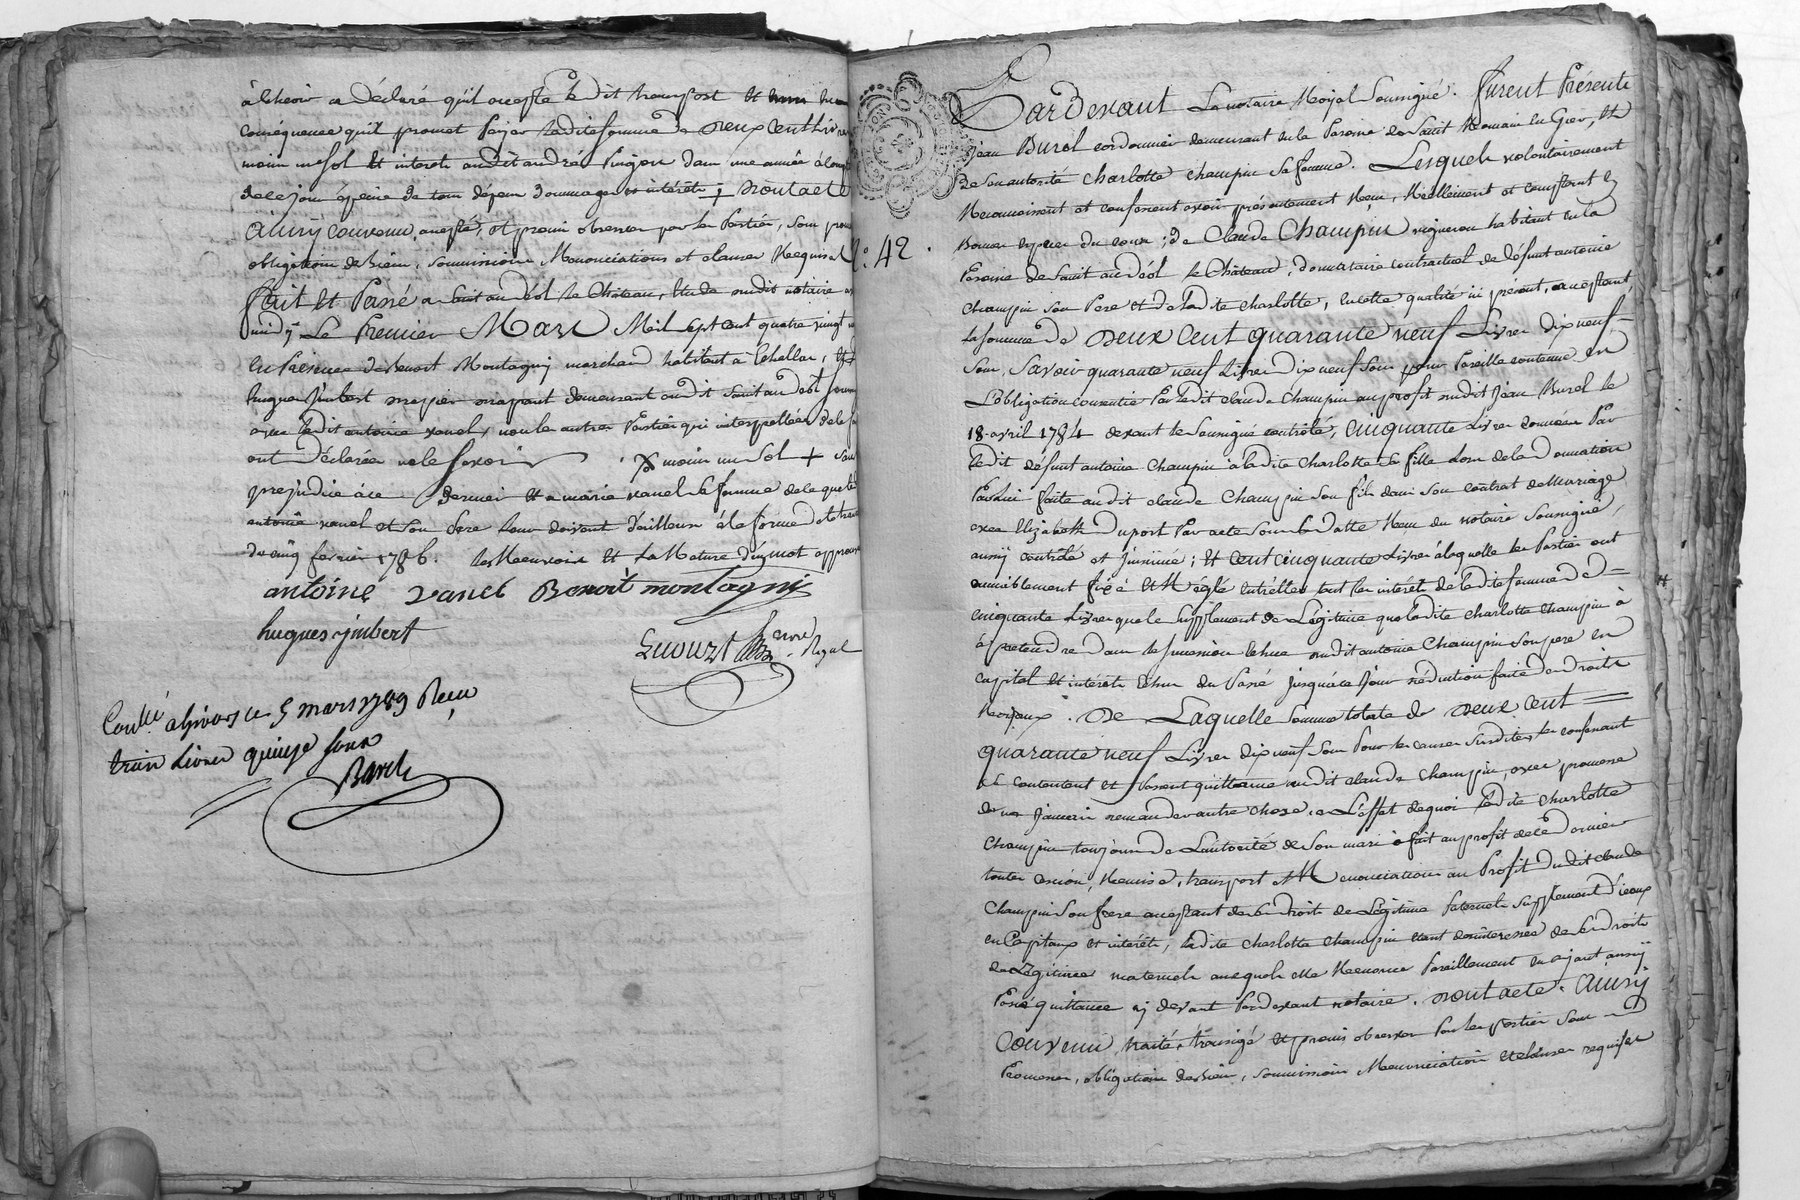 a déclaré qu'il accepte ledit transport et
conséquence qu'il promet payer ladite somme de deux cent livres
moin un sol et interets audit andré dans une année à
de ce jour à peine de tous dépens dommages et intérêts + dont acte
ainsy convenu, accepté, et promis observer par les Parties, sous
obligation de biens, soumissions Renonciations et clauses Requises
fait et Passé a Saint andéol le Château, Etude dudit notaire
midy Le Premier Mars Mil sept cent quatre vingt
En Présence de Benoit Montagny marchand habitant à Echallas, et
hugues Jmbert demeurant audit Saint andeol
avec ledit antoine vanel, non les autres Parties qui interpellées de
ont Déclarées ne le savoir moin un sol + sans
prejudice à ce dernier et a marie vanel sa femme de ce que
antoine vanel et son frere leur doivent d'ailleurs à la forme
du cinq fevrier 1786. les Renvois et la Rature d'un mot approuvés
antoine vanel Benoît montagny
hugues jmbert
Royal
Conllé a Givors ce 5 mars 1789 Reçu
trois livres quinze sous
N°. 42.
Pardevant Le notaire Royal Soussigné. furent Présents
Jean Burel cordonnier demeurant en la Paroisse de Saint Romain en Gier, et
de son autorité Charlotte Champin sa femme. Lesquels volontairement
Reconnoissent et confessent avoir présentement Reçu, Réellement et comptant
de Claude Champin vigneron habitant en la
Paroisse de Saint andéol le Château, donnataire contractuel de défunt antoine
Champin son Pere et de ladite Charlotte, en cette qualité ici présent, acceptant,
la somme de deux cent quarante neuf Livres dix neuf
sous, Savoir quarante neuf Livres dix neuf sous pour Pareille contenue en
L'obligation consentie Par ledit claude Champin au profit dudit Jean Burel le
18 avril 1784 devant le Soussigné controlé, cinquante Livres données Par
ledit défunt antoine Champin à ladite Charlotte sa fille lors de la donnation
Par lui faite audit claude Champin son fils dans son contrat de Mariage
avec Elizabeth Duport Par acte sous sa datte Reçu du notaire Soussigné,
aussy controlé et Jnsinué; et cent cinquante Livres à laquelle les Parties ont
amiablement fixé et Réglé entr'elles tant les intérêts de ladite somme de =
cinquante Livres que le supplement de Légitime que ladite Charlotte Champin à
à prétendre dans la succession dudit antoine Champin son pere en
capital et intérêts échus du Passé jusqu'à ce jour déduction faite des droits
Royaux. De Laquelle somme totale de deux cent =
quarante neuf Livres dix neuf sous Pour les causes susdites, les confessant
se contentent et Passent quittance audit claude Champin, avec promesse
de ne jamais rien demander autre chose, a L'effet de quoi ladite Charlotte
Champin toujours de L'autorité de son mari à fait au profit de ce dernier
toutes cession, Remise, transport et Renonciation au Profit dudit claude
Champin son frere acceptant de ses droits de Légitime Paternels supplement d'iceux
en Capitaux et intérêts, ladite Charlotte Champin étant de ses droits
de Légitimes maternels auxquels elle Renonce Pareillement en ayant aussy
Passé quittance cy devant Pardevant notaire. Dont acte. Ainsy
Convenu, traité, transigé et promis observer Par les parties sous
Promesses, obligation de biens, soumissions Renonciation et clauses requises